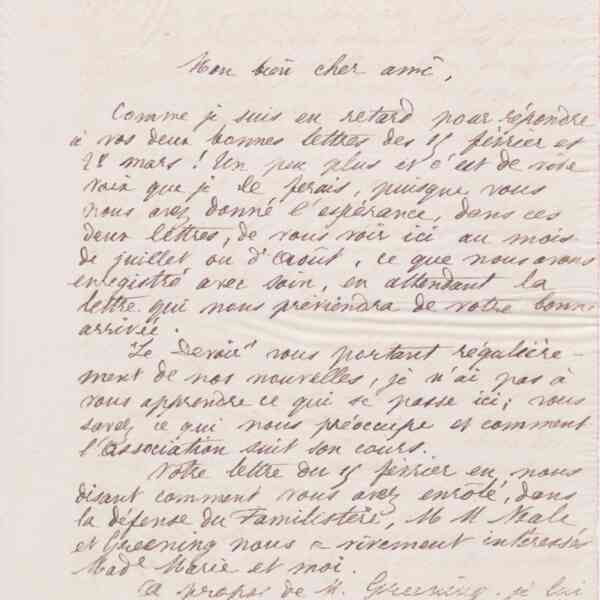 Mon bien cher ami,
Comme je suis en retard pour répondre
à vos deux bonnes lettres des 15 février et
mars ! Un peu plus et c'est de vive
voix que je le ferais, puisque vous
nous avez donné l'espérance, dans ces
deux lettres, de vous voir ici au mois
de juillet ou d'Août, ce que nous avons
enregistré avec soin, en attendant la
lettre qui nous préviendra de votre bonne
arrivée.
"Le Devoir" vous portant régulière-
ment de nos nouvelles, je n'ai pas à
vous apprendre ce qui se passe ici ; vous
savez ce qui nous préoccupe et comment
l'Association suit son cours.
Votre lettre du 15 février en nous
disant comment vous avez enrôlé, dans
la défense du Familistère, M M Neale
et Greening nous a vivement intéressés
Made Marie et moi.
A propos de M. Greening, je lui